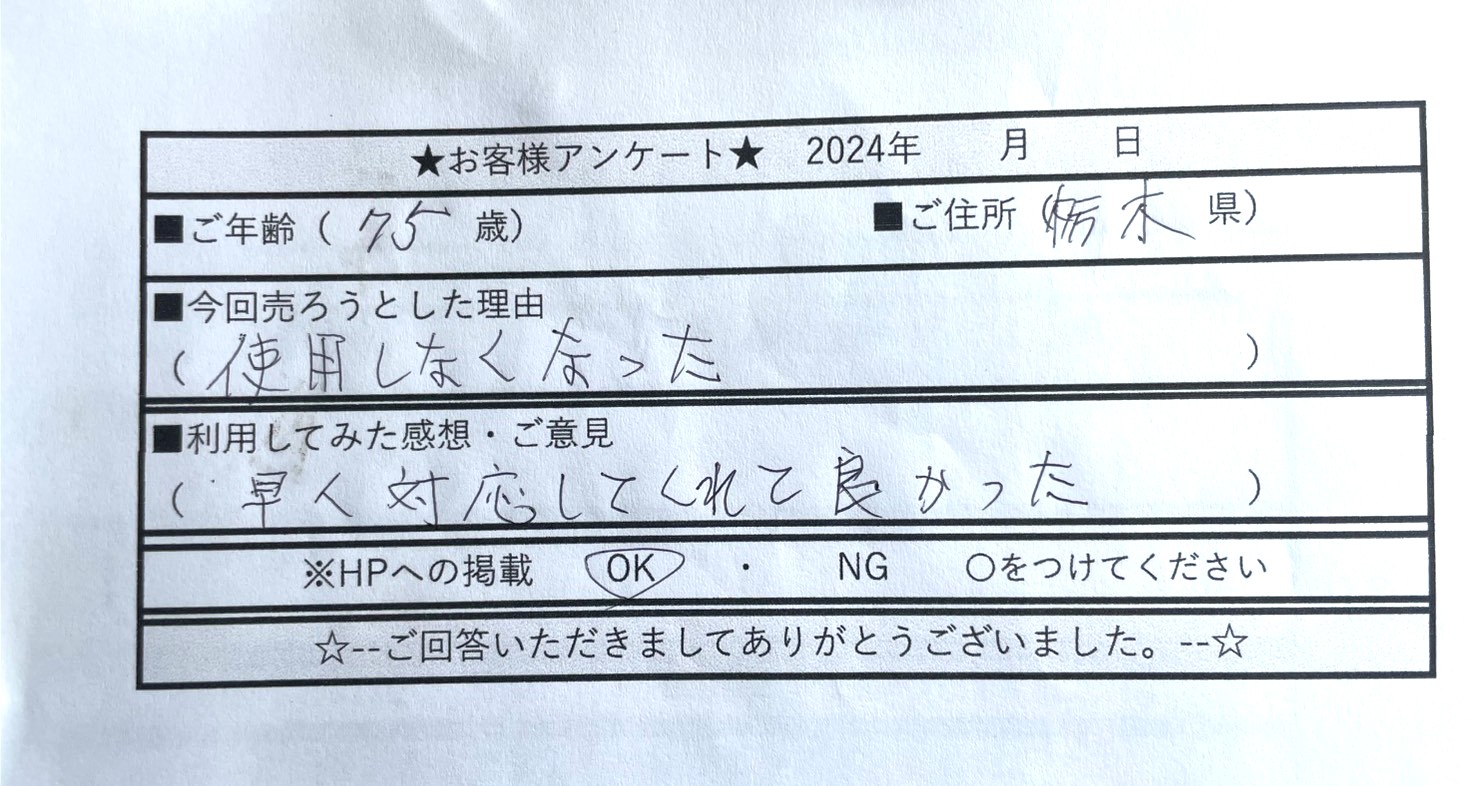 ★お客様アンケート★ 2024年 月 日
■ご年齢（ 75 歳） ■ご住所（栃木 県）
■今回売ろうとした理由
（使用しなくなった ）
■利用してみた感想・ご意見
（早く対応してくれて良かった ）
※HPへの掲載 OK ・ NG ○をつけてください
☆--ご回答いただきましてありがとうございました。--☆